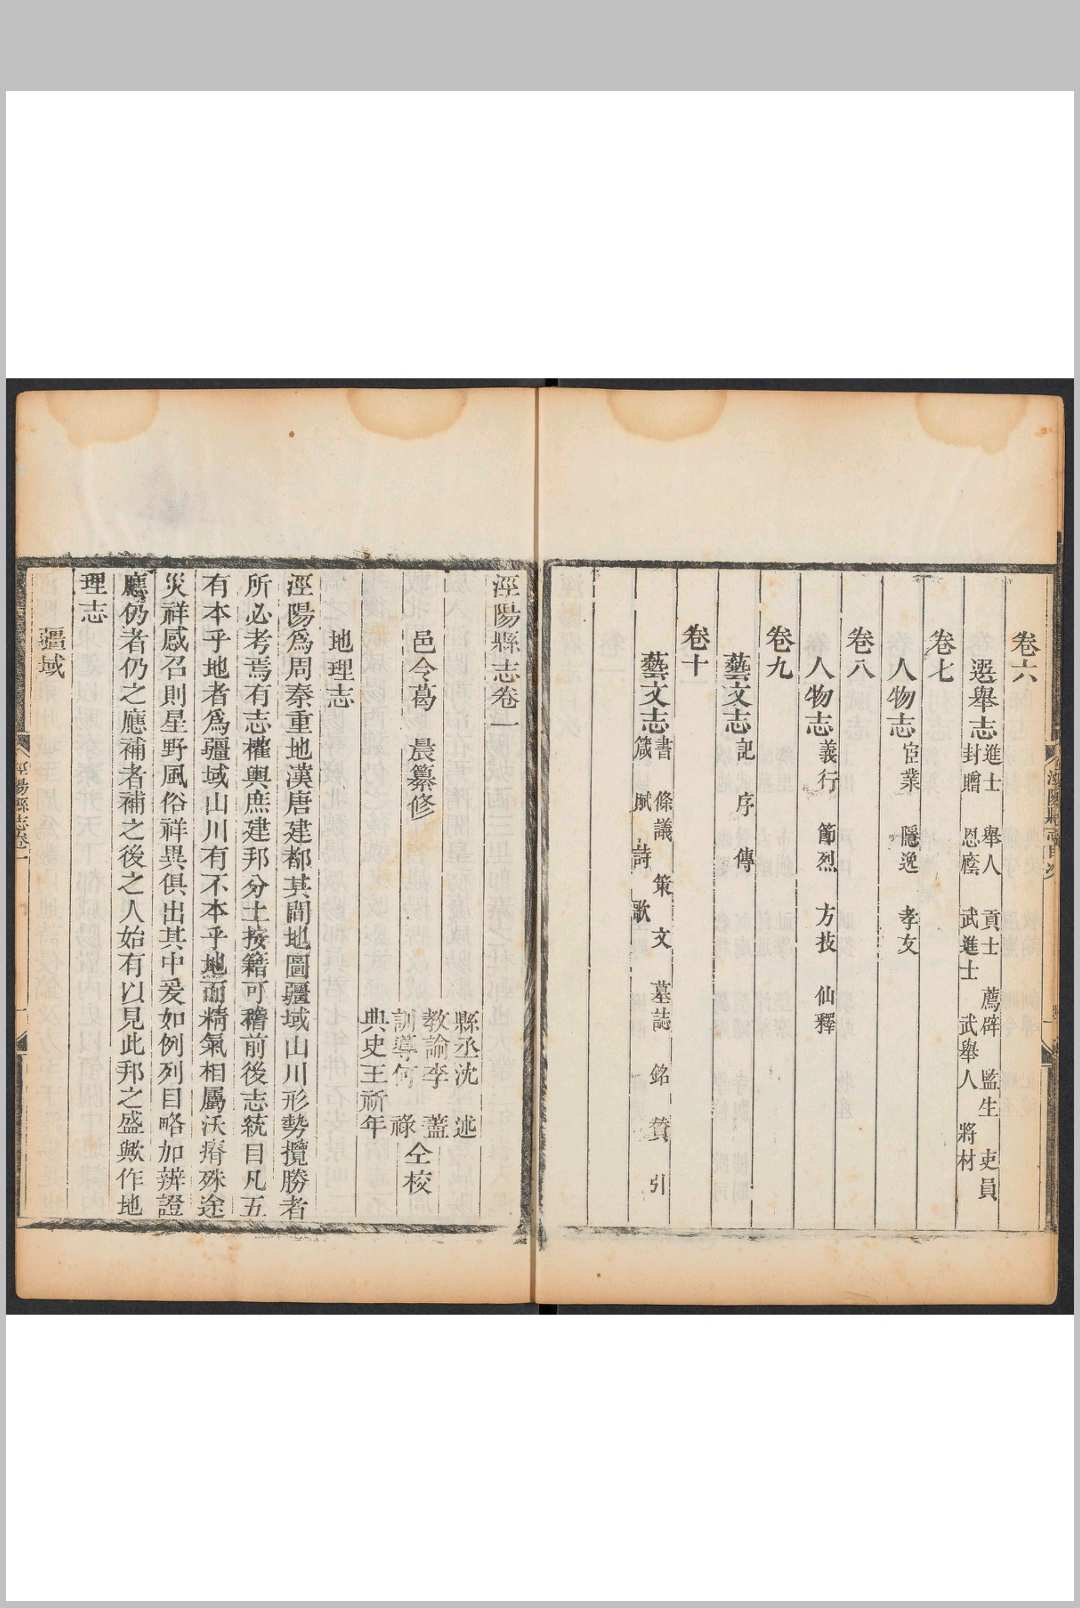 卷六
選舉志 進士 舉人 貢士 薦辟 監生 吏員
封贈 恩廕 武進士 武舉人 將材
卷七
人物志 宦業 隱逸 孝友
卷八
人物志 義行 節烈 方技 仙釋
卷九
藝文志 記 序 傳
卷十
藝文志 書 條議 策 文 墓誌 銘 贊 引
箴 賦 詩 歌
涇陽縣志卷一
縣丞沈 述
邑令葛 晨纂修 教諭李 蓋 仝校
訓導何 祿
典史王祈年
地理志
涇陽爲周秦重地漢唐建都其間地圖疆域山川形勢攬勝者
所必考焉有志權輿庶建邦分土按籍可稽前後志統目凡五
有本乎地者爲疆域山川有不本乎地而精氣相屬沃瘠殊途
災祥感召則星野風俗祥異俱出其中爰如例列目略加辨證
應仍者仍之應補者補之後之人始有以見此邦之盛歟作地
理志
疆域
涇陽縣志卷一